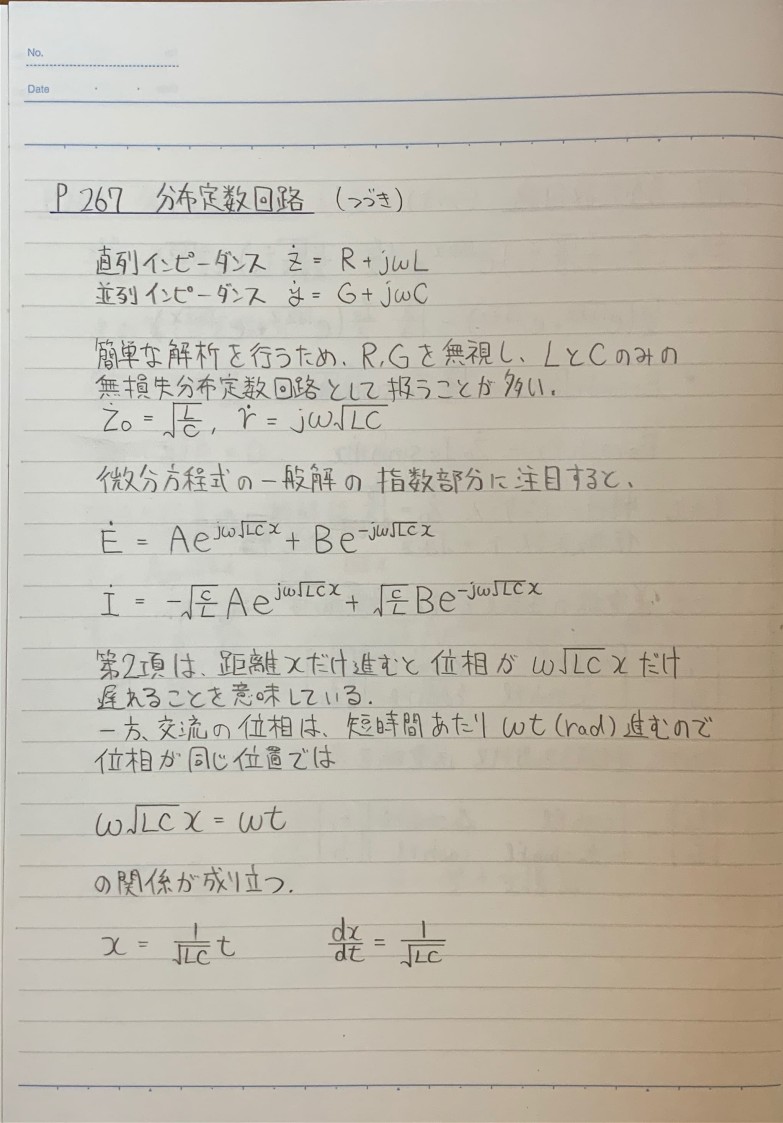 No.
Date
P 267 分布定数回路 (つづき)
直列インピーダンス ż = R + jωL
並列インピーダンス ẏ = G + jωC
簡単な解析を行うため、R,Gを無視し、LとCのみの
無損失分布定数回路として扱うことが多い.
Ż₀ = √(L/C), ṙ = jω√LC
微分方程式の一般解の指数部分に注目すると、
Ė = Ae^(jω√LC x) + Be^(-jω√LC x)
İ = -√(C/L) Ae^(jω√LC x) + √(C/L) Be^(-jω√LC x)
第2項は、距離xだけ進むと位相が ω√LC x だけ
遅れることを意味している.
一方、交流の位相は、短時間あたり ωt (rad) 進むので
位相が同じ位置では
ω√LC x = ωt
の関係が成り立つ.
x = 1/√LC t dx/dt = 1/√LC